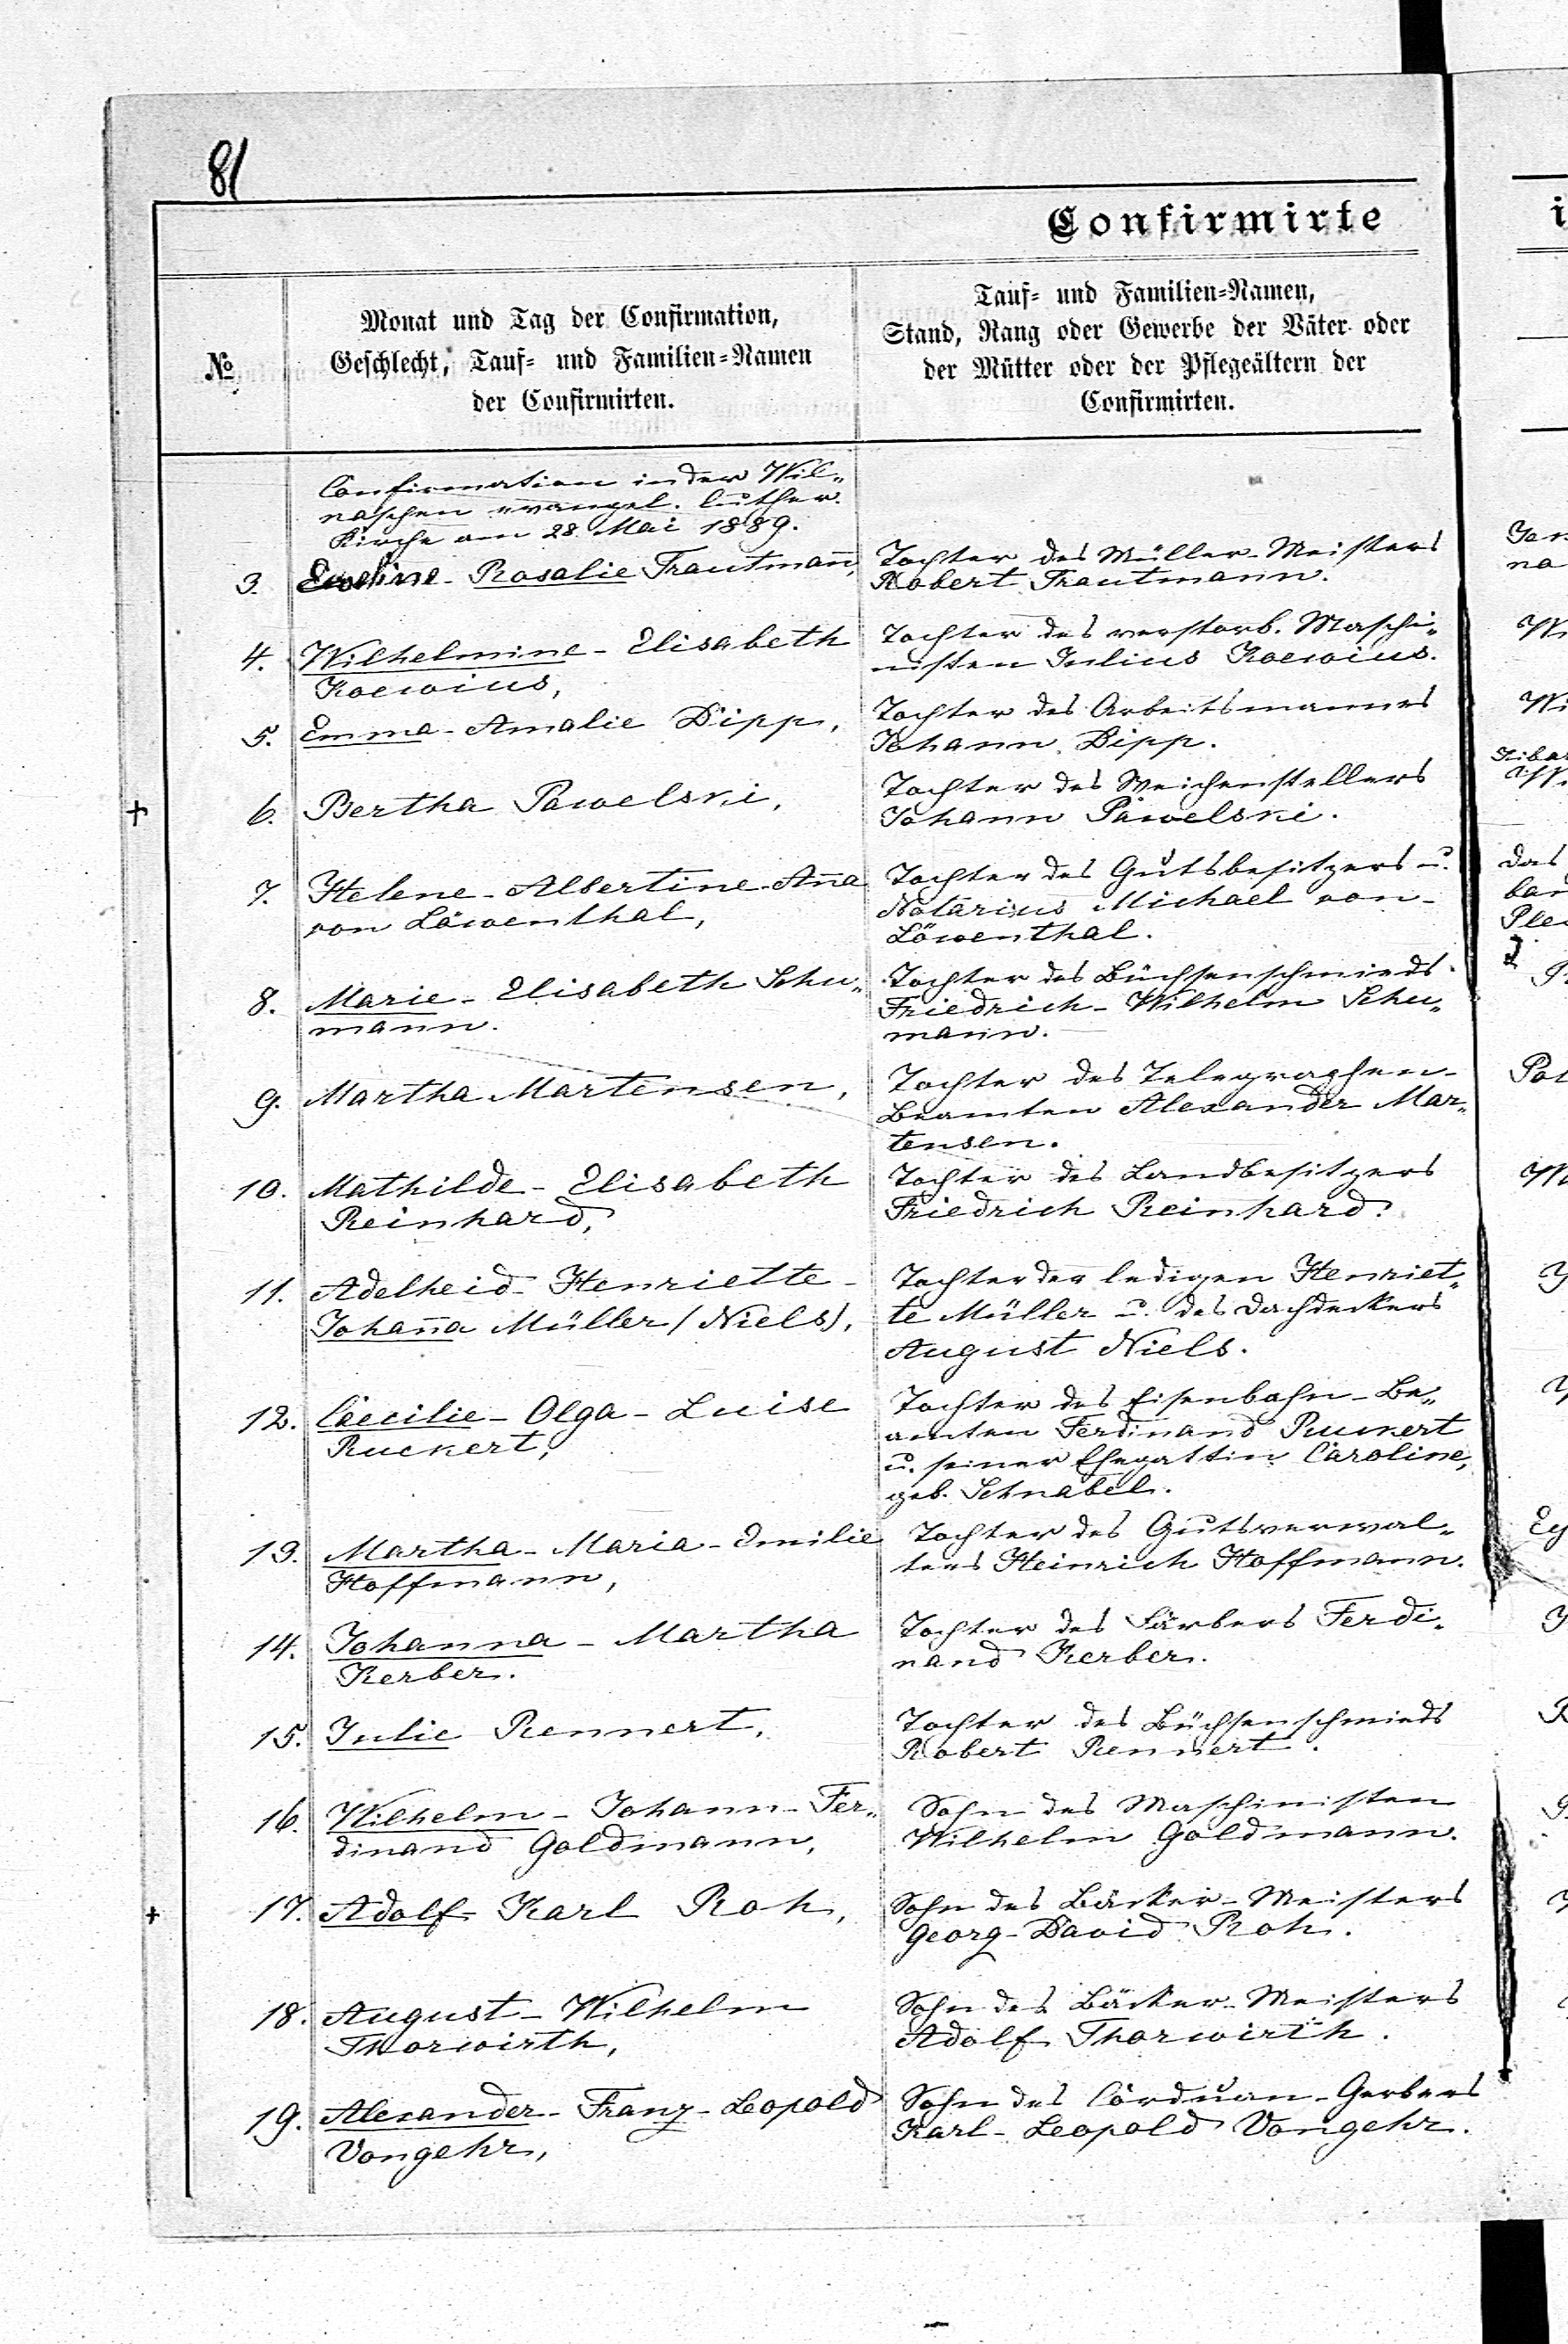 81
Confirmirte
№
Monat und Tag der Confirmation,
Geschlecht, Tauf- und Familien-Namen
der Confirmirten.
Tauf- und Familien-Namen,
Stand, Rang oder Gewerbe der Väter oder
der Mütter oder der Pflegeältern der
Confirmirten.
Confirmation in der Wil-
naschen evangel. luther.
Kirche am 28. Mai 1889.
3. Eveline-Rosalie Trautmann̄,
Tochter des Müller-Meisters
Robert Trautmann.
4. Wilhelmine-Elisabeth
Koewius,
Tochter des verstorb. Maschi-
nisten Julius Koewius.
5. Emma-Amalie Dipp,
Tochter des Arbeitsmannes
Johann Dipp.
+ 6. Bertha Pawelski,
Tochter des Weichenstellers
Johann Pawelski.
7. Helene-Albertine-An̄a
von Löwenthal,
Tochter des Gutsbesitzers u.
Notarius Michael von-
Löwenthal.
8. Marie-Elisabeth Schu-
mann.
Tochter des Büchsenschmieds
Friedrich-Wilhelm Schu-
mann.
9. Martha Martensen,
Tochter des Telegraphen-
Beamten Alexander Mar-
tensen.
10. Mathilde-Elisabeth
Reinhard,
Tochter des Landbesitzers
Friedrich Reinhard.
11. Adelheid-Henriette-
Johan̄a Müller (Niels),
Tochter der ledigen Henriet-
te Müller u. des Dachdeckers
August Niels.
12. Caecilie-Olga-Luise
Ruckert,
Tochter des Eisenbahn-Be-
amten Ferdinand Ruckert
u. seiner Ehegattin Caroline,
geb. Schnabel.
13. Martha-Maria-Emilie
Hoffmann,
Tochter des Gutsverwal-
ters Heinrich Hoffmann.
14. Johanna-Martha
Kerber.
Tochter des Färbers Ferdi-
nand Kerber.
15. Julie Rennert,
Tochter des Büchsenschmieds
Robert Rennert.
16. Wilhelm-Johann-Fer-
dinand Goldmann,
Sohn des Maschinisten
Wilhelm Goldmann.
+ 17. Adolf Karl Roh,
Sohn des Bäcker-Meisters
Georg-David Roh.
18. August-Wilhelm
Thorwirth,
Sohn des Bäcker-Meisters
Adolf Thorwirth.
19. Alexander-Franz-Leopold
Vongehr,
Sohn des Corduan-Gerbers
Karl-Leopold Vongehr.